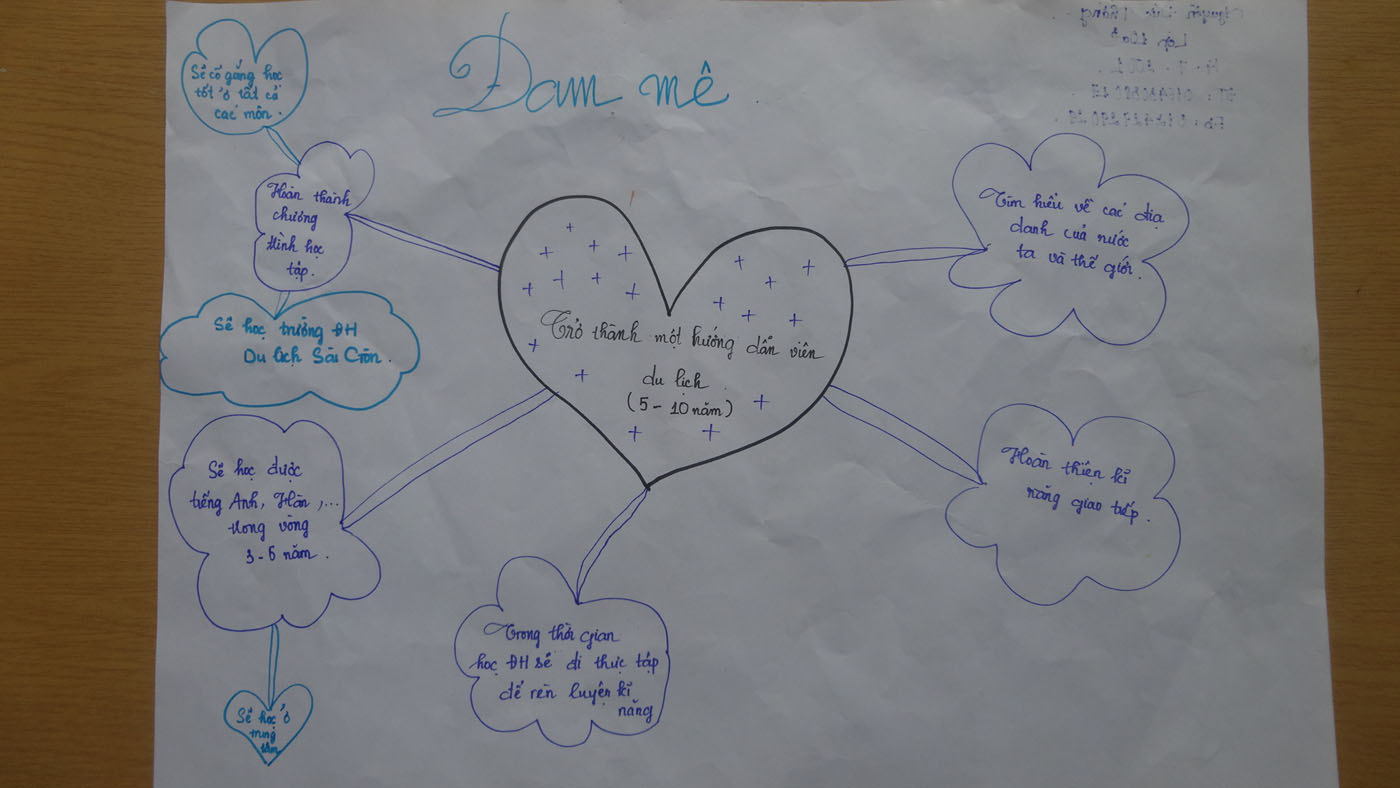 Đam mê
Sẽ cố gắng học
tốt ở tất cả
các môn.
Hoàn thành
chương
trình học
tập.
Sẽ học trường ĐH
Du lịch Sài Gòn.
Sẽ học được
tiếng Anh, Hàn,...
trong vòng
3-5 năm.
Sẽ học ở
trung
tâm
Trở thành một hướng dẫn viên
du lịch.
(5 - 10 năm)
Trong thời gian
học ĐH sẽ đi thực tập
để rèn luyện kĩ
năng
Tìm hiểu về các địa
danh của nước
ta và thế giới.
Hoàn thiện kĩ
năng giao tiếp.